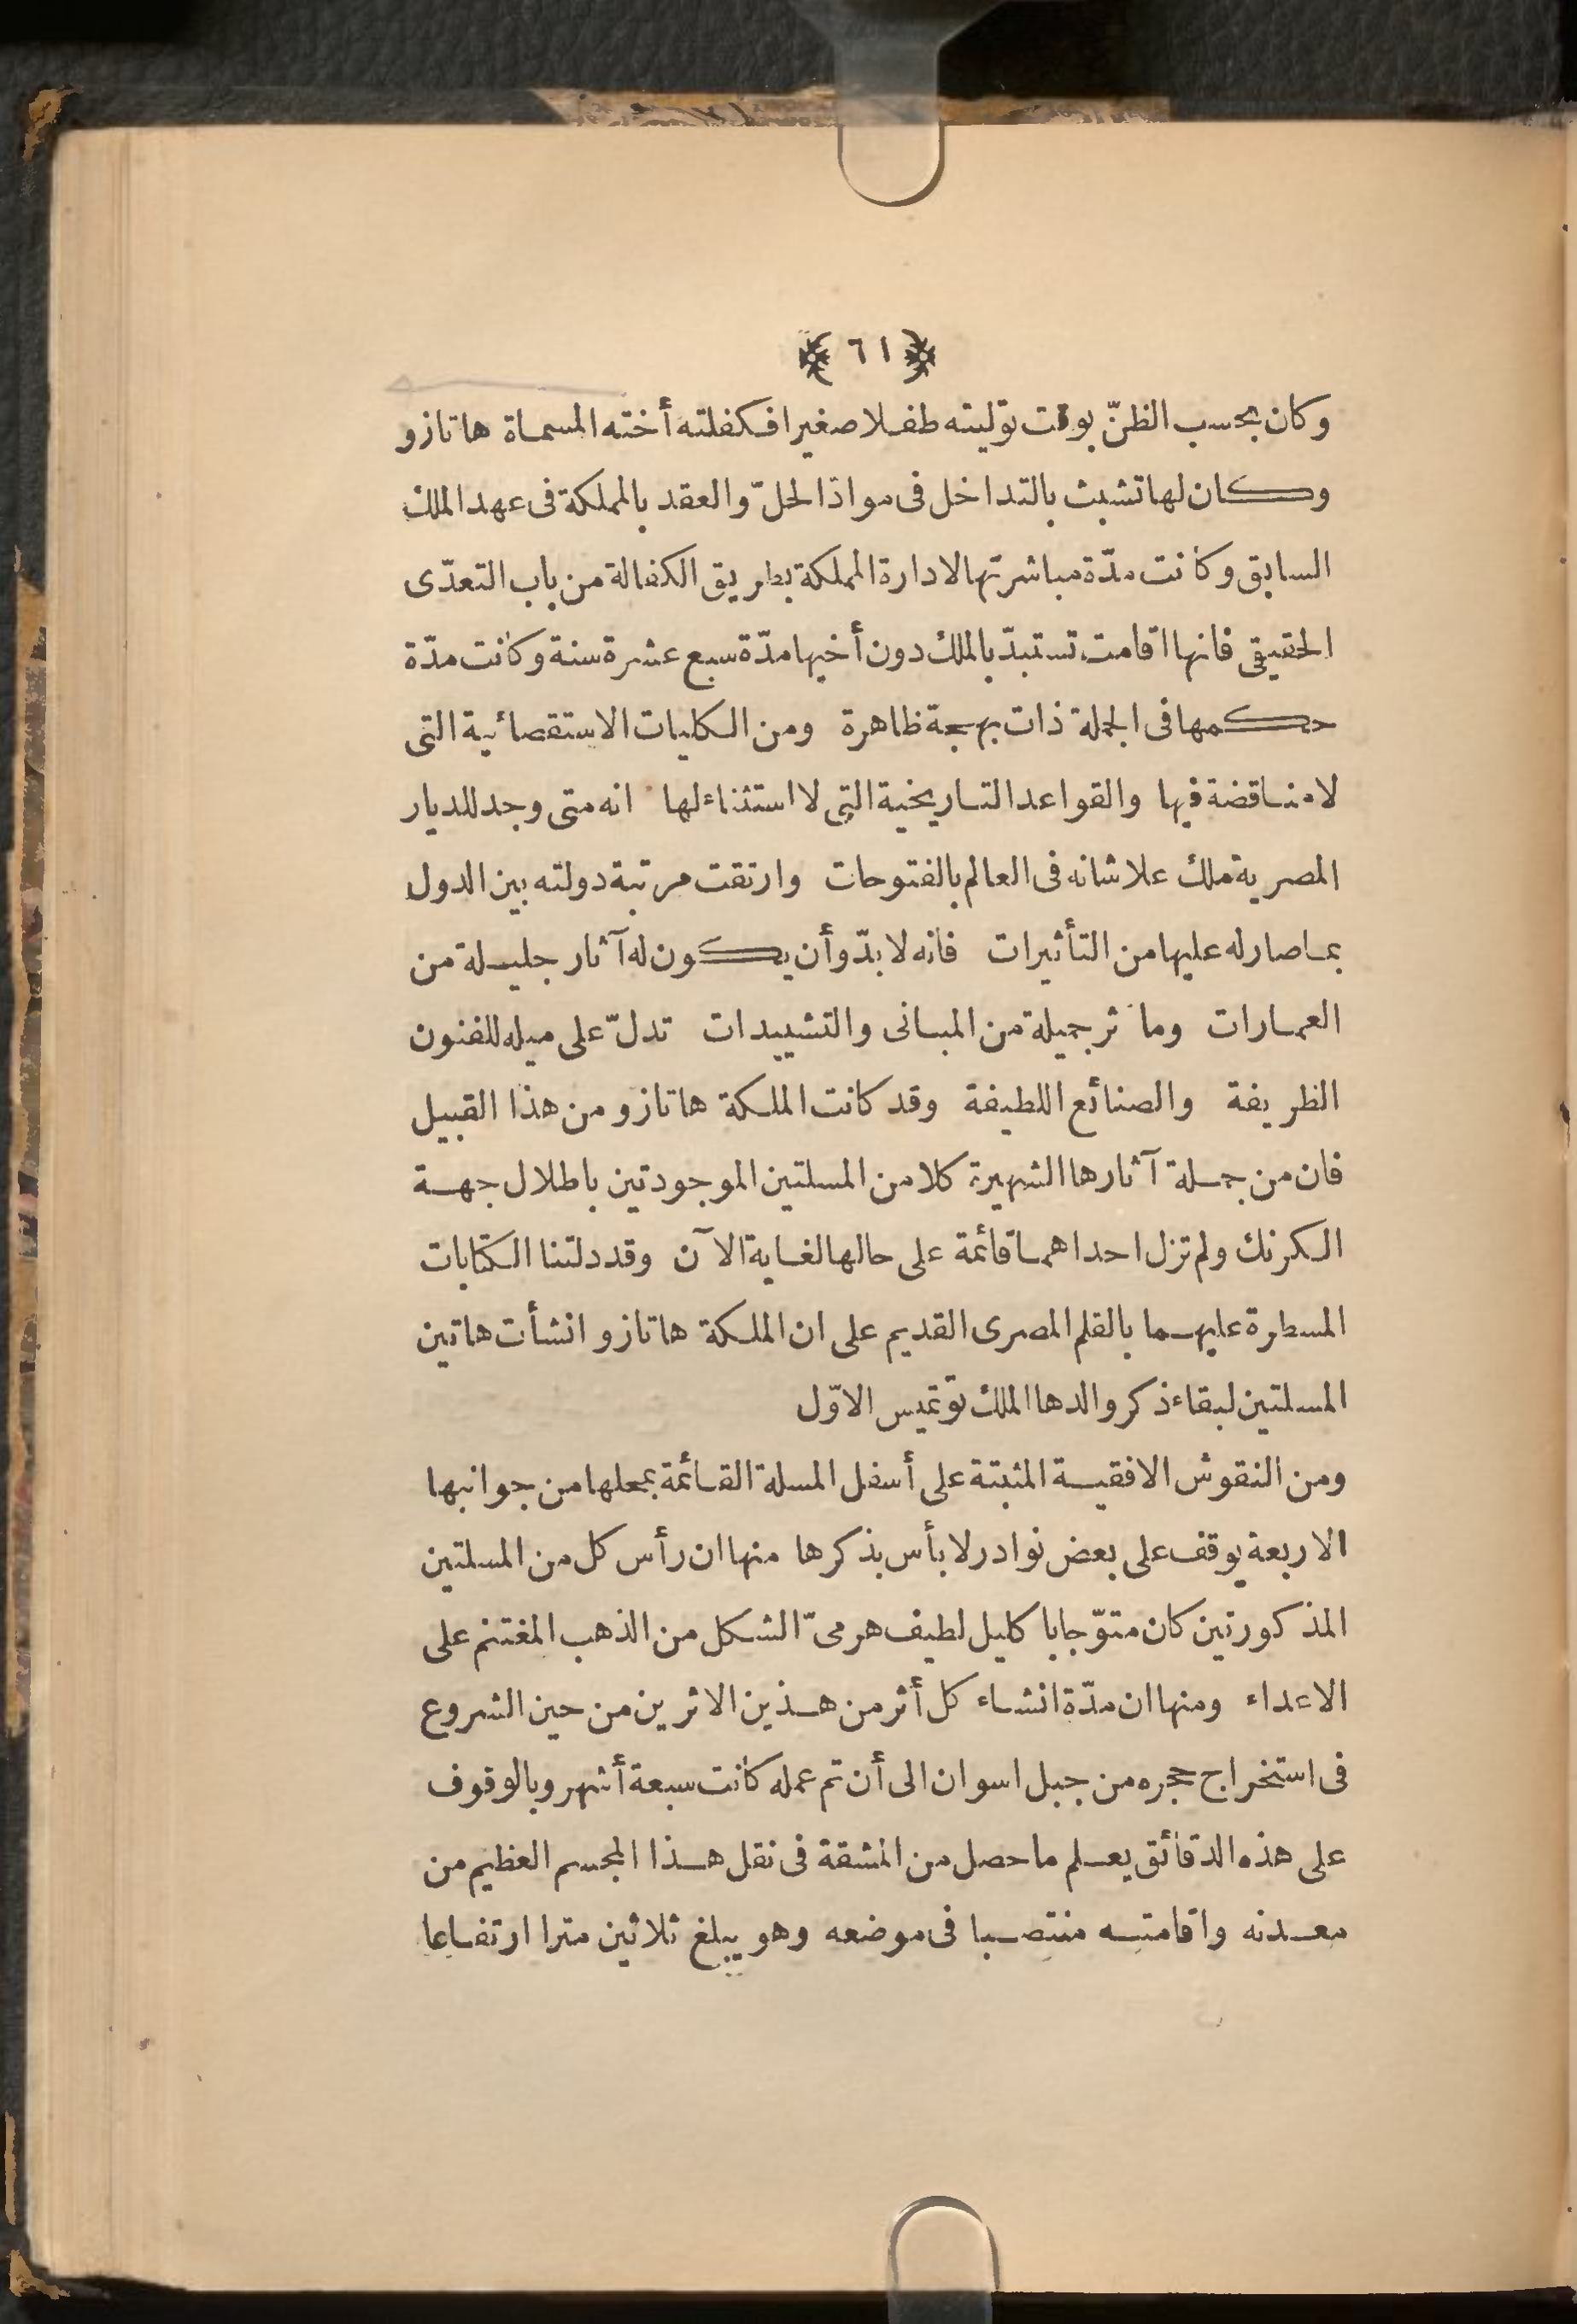 ﴿ ٦١ ﴾
وكان بحسب الظنّ بوقت توليته طفلا صغيرا فكفلته أخته المسماة هاتازو
وكان لها تشبث بالتداخل فى موادّ الحلّ والعقد بالمملكة فى عهد الملك
السابق وكانت مدّة مباشرتها لادارة المملكة بطريق الكفالة من باب التعدّى
الحقيقى فانها اقامت تستبدّ بالملك دون أخيها مدّة سبع عشرة سنة وكانت مدّة
حكمها فى الجملة ذات بهجة ظاهرة ومن الكليات الاستقصائية التى
لا مناقضة فيها والقواعد التاريخية التى لا استثناء لها انه متى وجد للديار
المصرية ملك علا شانه فى العالم بالفتوحات وارتقت مرتبة دولته بين الدول
بما صار له عليها من التأثيرات فانه لا بدّ وأن يكون له آثار جليلة من
العمارات ومآثر جميلة من المبانى والتشييدات تدلّ على ميله للفنون
الظريفة والصنائع اللطيفة وقد كانت الملكة هاتازو من هذا القبيل
فان من جملة آثارها الشهيرة كلا من المسلتين الموجودتين باطلال جهة
الكرنك ولم تزل احداهما قائمة على حالها لغاية الآن وقد دلتنا الكتابات
المسطرة عليهما بالقلم المصرى القديم على ان الملكة هاتازو انشأت هاتين
المسلتين لبقاء ذكر والدها الملك توتميس الاوّل
ومن النقوش الافقية المثبتة على أسفل المسلة القائمة بمحلها من جوانبها
الاربعة يوقف على بعض نوادر لا بأس بذكرها منها ان رأس كل من المسلتين
المذكورتين كان متوّجا باكليل لطيف هرمىّ الشكل من الذهب المغتنم على
الاعداء ومنها ان مدّة انشاء كل أثر من هذين الاثرين من حين الشروع
فى استخراج حجره من جبل اسوان الى أن تم عمله كانت سبعة أشهر وبالوقوف
على هذه الدقائق يعلم ما حصل من المشقة فى نقل هذا المجسم العظيم من
معدنه واقامته منتصبا فى موضعه وهو يبلغ ثلاثين مترا ارتفاعا